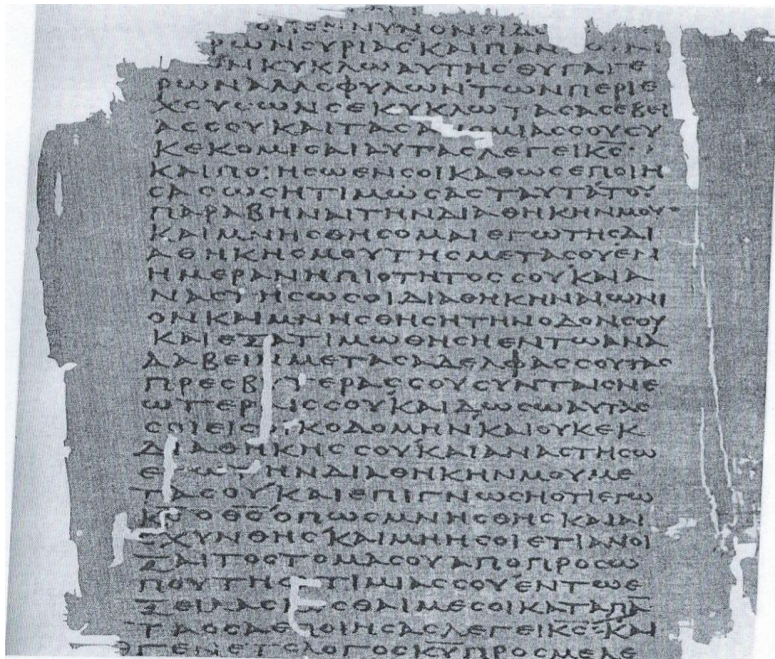 ΝΥΝΟΝΕΙΔΟ
ΡΩΝϹΥΡΙΑϹΚΑΙΠΑΝ
ΕΝΚΥΚΛΩΑΥΤΗϹΘΥΓΑΤΕ
ΡΩΝΑΛΛΟΦΥΛΩΝΤΩΝΠΕΡΙΕ
ΧΟΥϹΩΝϹΕΚΥΚΛΩΤΑϹΑϹΕΒΕΙ
ΑϹϹΟΥΚΑΙΤΑϹΑΝΟΜΙΑϹϹΟΥϹΥ
ΚΕΚΟΜΙϹΑΙΑΥΤΑϹΛΕΓΕΙΚ̅Ϲ̅
ΚΑΙΠΟΙΗϹΩΕΝϹΟΙΚΑΘΩϹΕΠΟΙΗ
ϹΑϹΩϹΗΤΙΜΩϹΑϹΤΑΥΤΑΤΟΥ
ΠΑΡΑΒΗΝΑΙΤΗΝΔΙΑΘΗΚΗΝΜΟΥ
ΚΑΙΜΝΗϹΘΗϹΟΜΑΙΕΓΩΤΗϹΔΙ
ΑΘΗΚΗϹΜΟΥΤΗϹΜΕΤΑϹΟΥΕΝ
ΗΜΕΡΑΝΗΠΙΟΤΗΤΟϹϹΟΥΚΑΙΑ
ΝΑϹΤΗϹΩϹΟΙΔΙΑΘΗΚΗΝΑΙΩΝΙ
ΟΝΚΑΙΜΝΗϹΘΗϹΗΤΗΝΟΔΟΝϹΟΥ
ΚΑΙΕΞΑΤΙΜΩΘΗϹΗΕΝΤΩΑΝΑ
ΛΑΒΕΙΝΜΕΤΑϹΑΔΕΛΦΑϹϹΟΥΤΑϹ
ΠΡΕϹΒΥΤΕΡΑϹϹΟΥϹΥΝΤΑΙϹΝΕ
ΩΤΕΡΑΙϹϹΟΥΚΑΙΔΩϹΩΑΥΤΑϹ
ϹΟΙΕΙϹΟΙΚΟΔΟΜΗΝΚΑΙΟΥΚΕΚ
ΔΙΑΘΗΚΗϹϹΟΥΚΑΙΑΝΑϹΤΗϹΩ
ΕΓΩΤΗΝΔΙΑΘΗΚΗΝΜΟΥΜΕ
ΤΑϹΟΥΚΑΙΕΠΙΓΝΩϹΗΟΤΙΕΓΩ
Κ̅Ϲ̅ΟΘ̅Ϲ̅ΟΠΩϹΜΝΗϹΘΗϹΚΑΙΑΙ
ϹΧΥΝΘΗϹΚΑΙΜΗϹΟΙΕΤΙΑΝΟΙ
ΞΑΙΤΟϹΤΟΜΑϹΟΥΑΠΟΠΡΟϹΩ
ΠΟΥΤΗϹΑΤΙΜΙΑϹϹΟΥΕΝΤΩΕ
ΞΕΙΛΑϹΚΕϹΘΑΙΜΕϹΟΙΚΑΤΑΠΑ
ΤΑΟϹΑΕΠΟΙΗϹΑϹΛΕΓΕΙΚ̅Ϲ̅ΚΑΙ
ΕΓΕΝΕΤΟΛΟΓΟϹΚ̅Υ̅ΠΡΟϹΜΕΛΕ